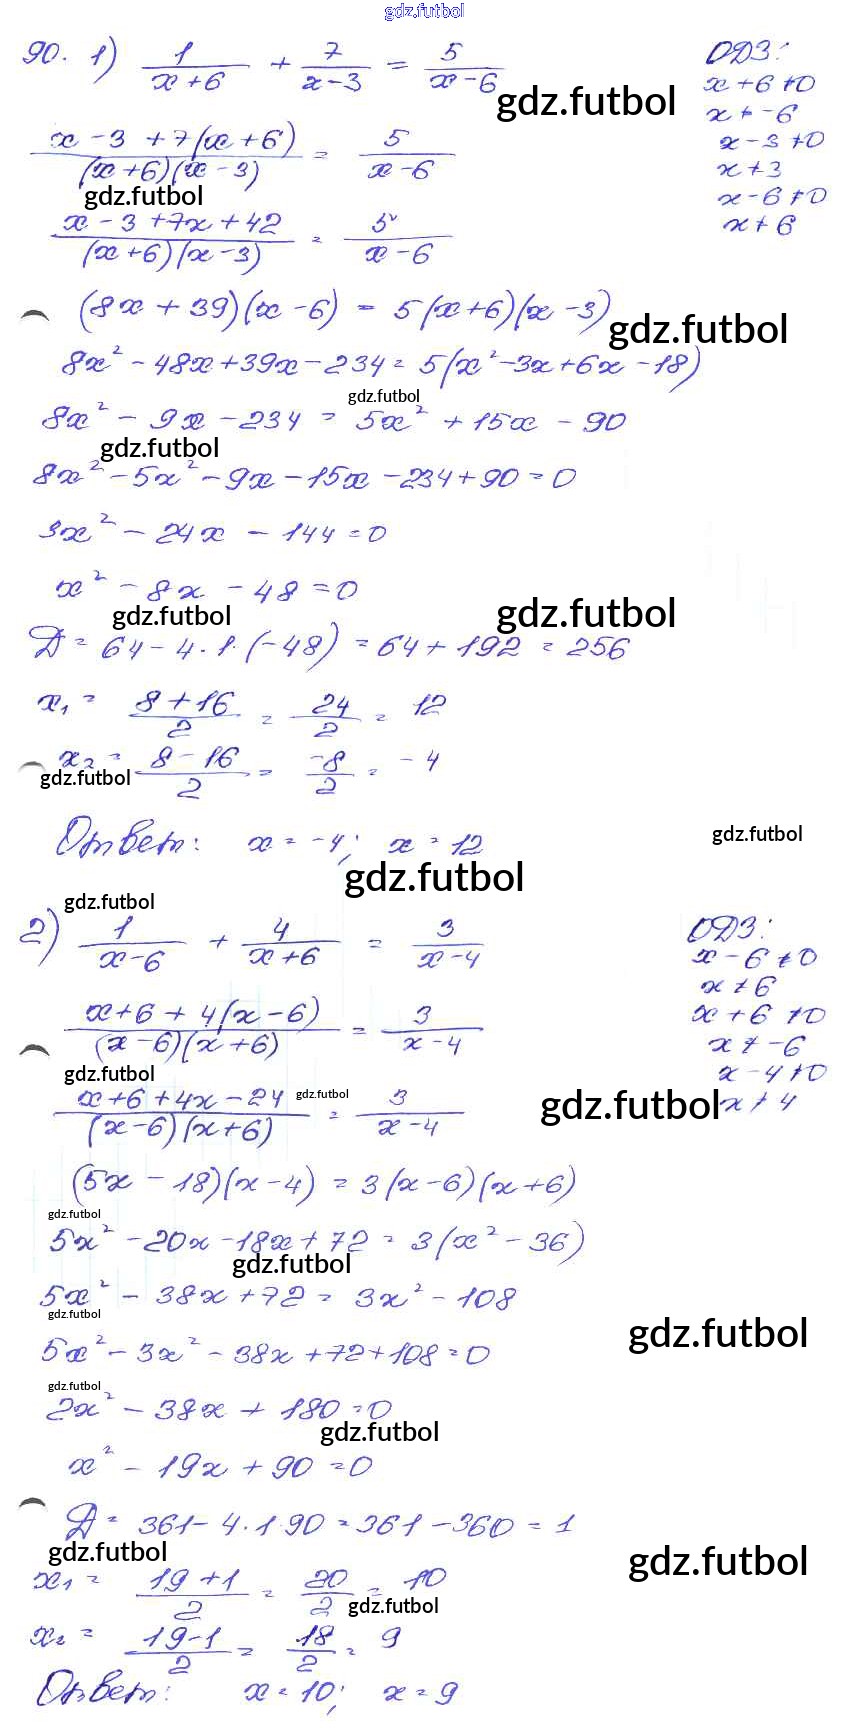 gdz.futbol
90. 1) 1/(x+6) + 7/(x-3) = 5/(x-6)
ОДЗ:
x+6≠0
x≠-6
x-3≠0
x≠3
x-6≠0
x≠6
gdz.futbol
(x-3+7(x+6))/((x+6)(x-3)) = 5/(x-6)
gdz.futbol
(x-3+7x+42)/((x+6)(x-3)) = 5/(x-6)
(8x+39)(x-6) = 5(x+6)(x-3)
gdz.futbol
8x²-48x+39x-234 = 5(x²-3x+6x-18)
gdz.futbol
8x²-9x-234 = 5x²+15x-90
gdz.futbol
8x²-5x²-9x-15x-234+90=0
3x²-24x-144=0
x²-8x-48=0
gdz.futbol
gdz.futbol
Д=64-4·1·(-48)=64+192=256
x₁ = (8+16)/2 = 24/2 = 12
x₂ = (8-16)/2 = -8/2 = -4
gdz.futbol
Ответ: x=-4; x=12
gdz.futbol
gdz.futbol
gdz.futbol
2) 1/(x-6) + 4/(x+6) = 3/(x-4)
ОДЗ:
x-6≠0
x≠6
x+6≠0
x≠-6
x-4≠0
x≠4
(x+6+4(x-6))/((x-6)(x+6)) = 3/(x-4)
gdz.futbol
gdz.futbol
gdz.futbol
(x+6+4x-24)/((x-6)(x+6)) = 3/(x-4)
(5x-18)(x-4) = 3(x-6)(x+6)
gdz.futbol
5x²-20x-18x+72 = 3(x²-36)
gdz.futbol
5x²-38x+72 = 3x²-108
gdz.futbol
gdz.futbol
5x²-3x²-38x+72+108=0
gdz.futbol
2x²-38x+180=0
gdz.futbol
x²-19x+90=0
Д=361-4·1·90=361-360=1
gdz.futbol
gdz.futbol
x₁ = (19+1)/2 = 20/2 = 10
gdz.futbol
x₂ = (19-1)/2 = 18/2 = 9
Ответ: x=10; x=9